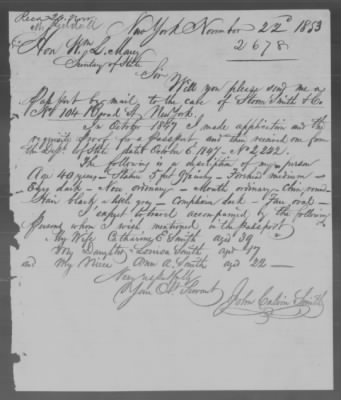 New York November 22d 1853
2678
Hon Wm L. Marcy
Secretary of State
Sir Will you please send me a
Passport by mail, to the care of Storm Smith & Co
No 104 Broad St, New York.
In October 1847 I made application and the
requisite proof for a Passport and then received one from
the Dept. of State dated October 6, 1847. No 2,242.
The following is a description of my person
Age 40 years - Stature 5 feet - Forehead medium -
Eyes dark - Nose ordinary - Mouth ordinary - Chin round
Hair black & little grey - Complexion dark - Face oval -
I expect to travel accompanied by the following
Persons whom I wish mentioned in the Passport
My Wife Catharine E Smith aged 39
My Daughter Louisa Smith aged 17
and My Niece Ann A. Smith aged 22 -
Very respectfully
Your Obt Servant
John Calvin Smith